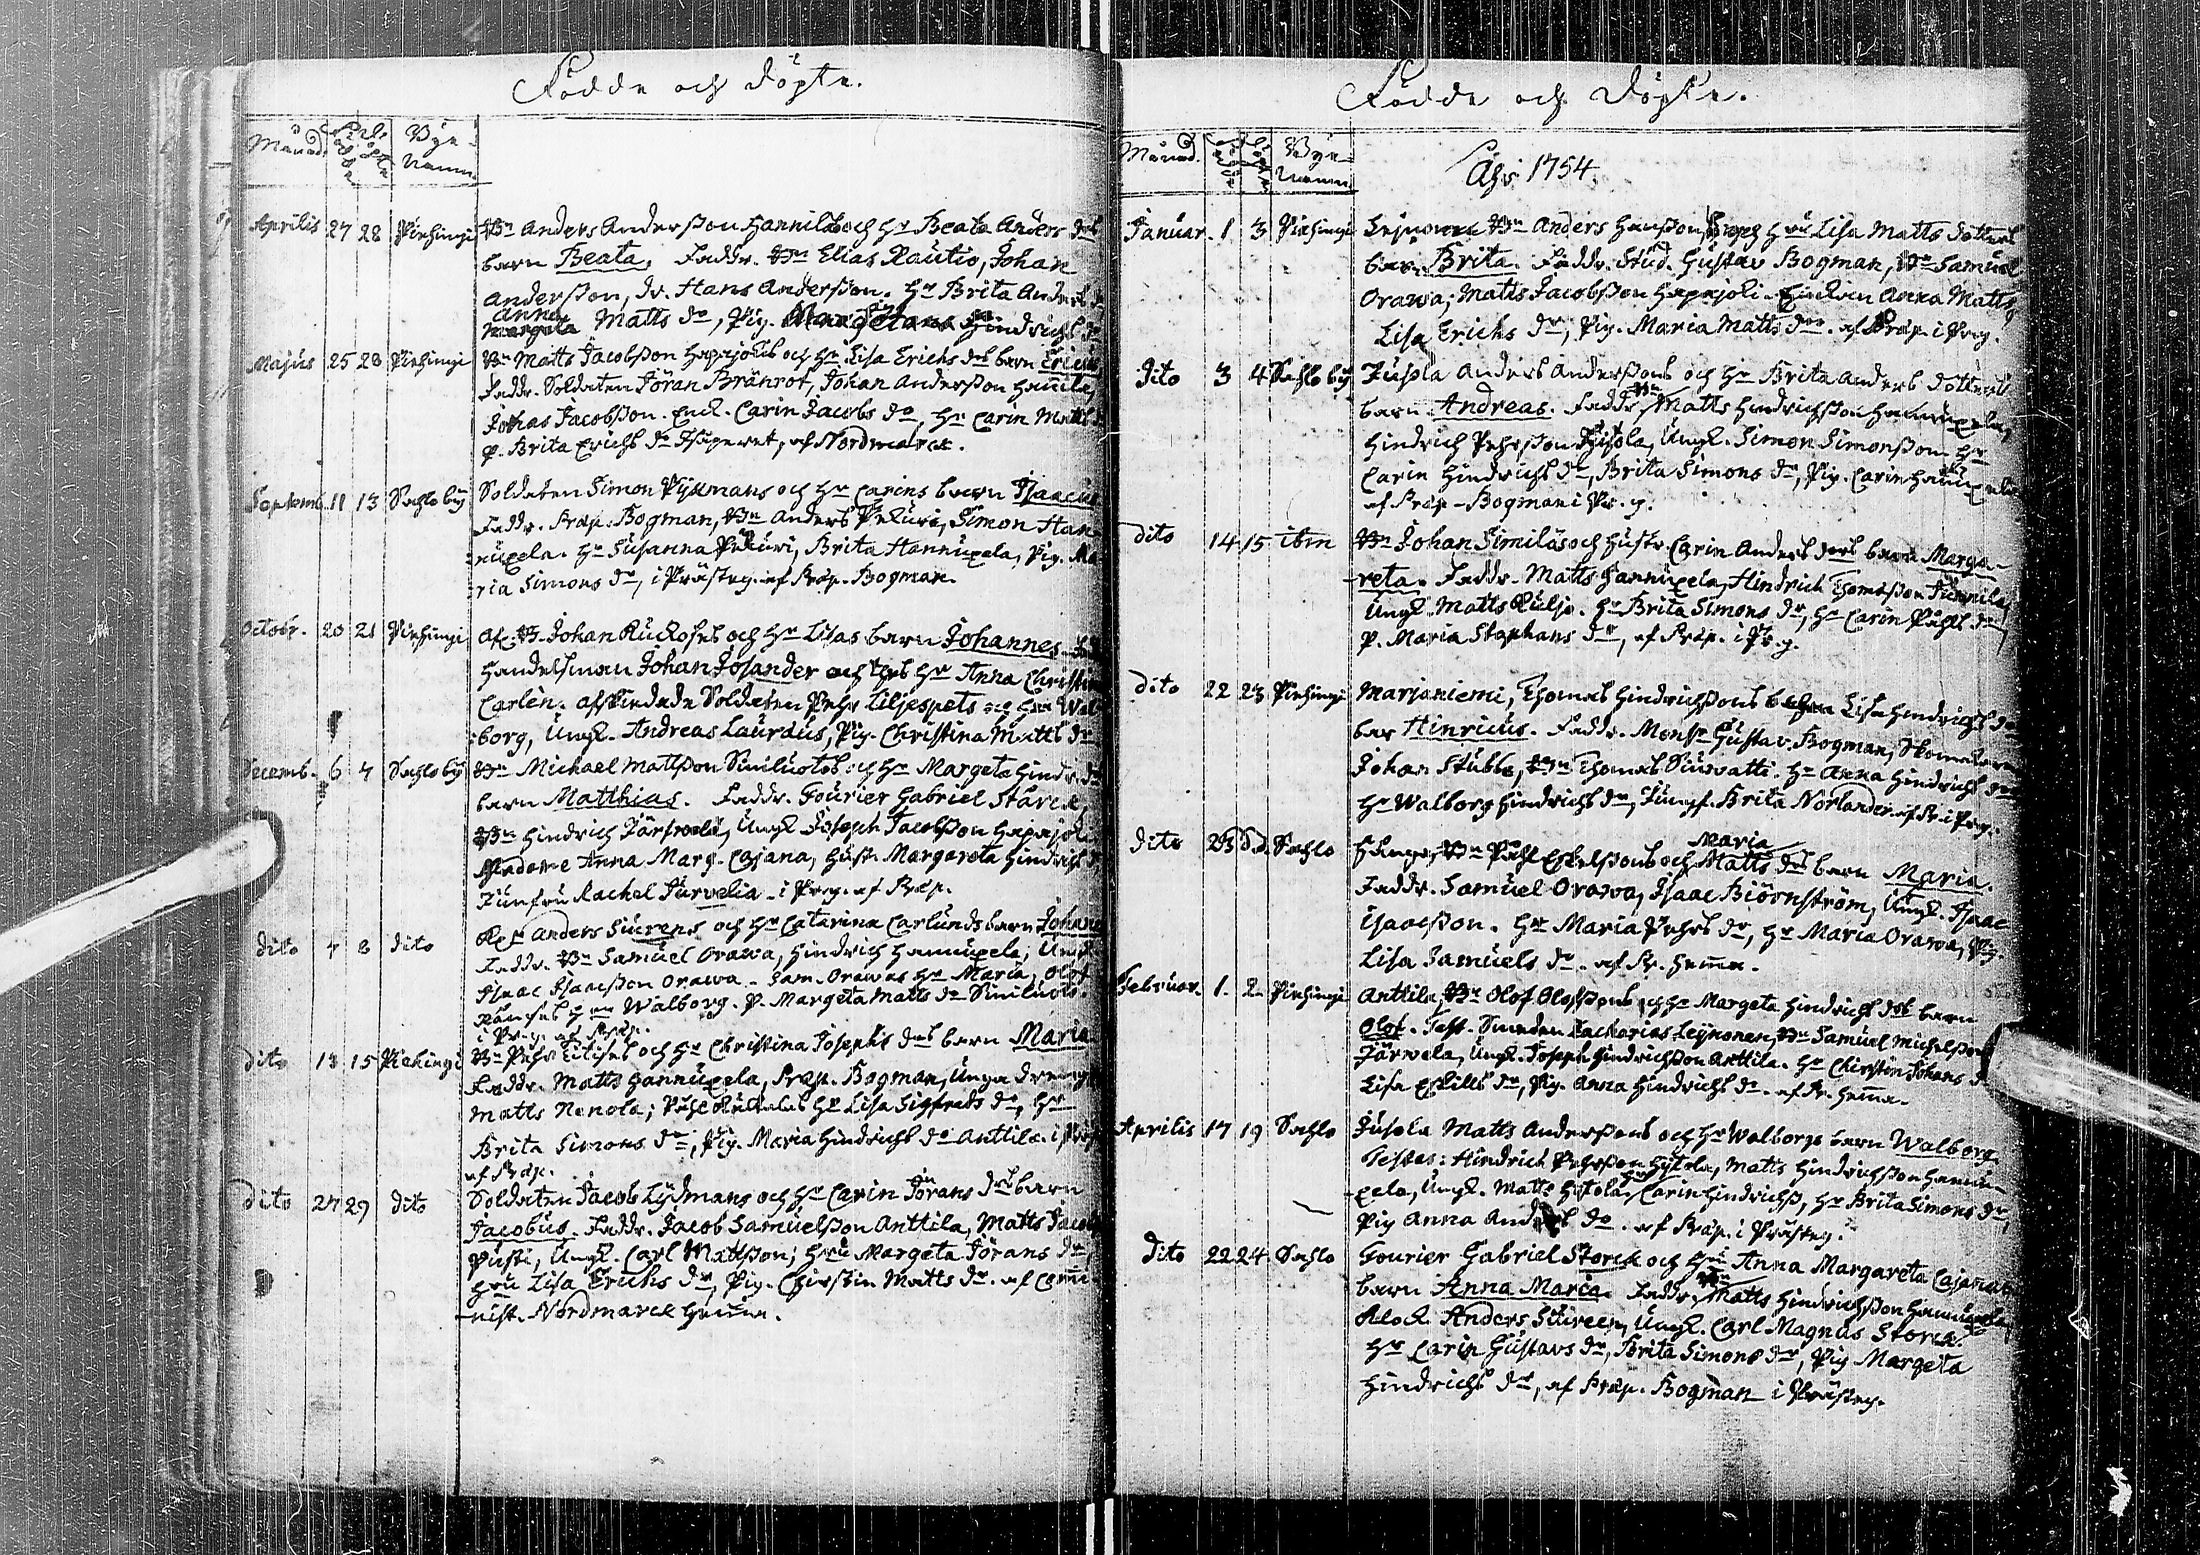 Födde och döpte.
Månad. Födde döpte Bye-
Namn.
Aprilis 27 28 Pirhingi Bn Anders Andersson Hannilas och Hr Beata Anders dotts
barn Beata. Faddr. Bn Elias Rautio, Johan
Andersson, dr. Hans Andersson. Hr Brita Anders
Anna Matts dr, Pig. Hindrichs dr
Majus 25 28 Pirhingi Bn Matts Jacobsson Hapajokis och Hr Lisa Erichs dr barn Ericus
Faddr. Soldaten Jöran Brånrot, Johan Andersson Hannila,
Johas Jacobsson. Enck. Carin Jacobs dr, Hr Carin Matts
p. Brita Erichs dr af Nordmarck.
Septemb. 11 13 Sahlo by Soldaten Simon Pijkmans och Hr Carins barn Isaacus
Faddr. Præp. Bogman, Bn Anders Pekuri, Simon Han-
nuxela. Hr Susanna Pekuri, Brita Hannuxela, Pig. Ma-
ria Simons dr, i Prästeg. af Præp. Bogman.
Octobr. 20 21 Pirhingi Afsk. B. Johan Ruckoses och Hr Lisas barn Johannes
Handelsman Johan Josander och dess Hr Anna Christina
Carlén. afskedade Soldaten Pehr Liljespets och Hru Wal-
borg, Ungk. Andreas Lauræus, Pig. Christina Matts dr
Decemb. 6 7 Sahlo by Bn Michael Mattsson Siniluotos och Hr Margeta Hindr. dr
barn Matthias. Faddr. Fourier Gabriel Storck,
Bn Hindrich Järfwelä, Ungk. Joseph Jacobsson Hapajoki
Madame Anna Marg. Cajana, Hustr. Margareta Hindrichs
Jungfru Rachel Jurvelia i Preg. af Præp.
dito 7 8 dito Anders Siurens och Hr Catarina Carlunds barn Johan
Faddr. Bn Samuel Orawa, Hindrich Hannuxela; Ungk.
Isaac Isacsson Orawa. Sam. Orawas Hr Maria, Olof
Hru Walborg. P. Margeta Matts dr Siniluoto.
i Preg. af Præp.
dito 13 15 Pirhingi Bn Pehr Eilises och Hr Christina Josephs dr barn Maria
Faddr. Matts Hannuxela, Præp. Bogman, Unga dreng
Matts Nenola; Påhl Hr Lisa Sigfreds dr, Hr
Brita Simons dr, Pig. Maria Hindrichs dr Anttila. i Preg
af Præp.
dito 27 29 dito Soldaten Jacob Lydmans och Hr Carin Jörans dr barn
Jacobus. Faddr. Jacob Samuelsson Anttila, Matts Jacob
Pusti, Ungk. Carl Mattsson; Hru Margeta Jörans dr,
Hru Lisa Erichs dr, Pig. Chirstin Matts dr. af Commi-
nist. Nordmarck hemma.
Födde och Döpte.
Månad. Födde döpte Bye-
Namn.
Åhr 1754.
Januar. 1 3 Pirhingi Leinonen Bn Anders Hansson och Hru Lisa Matts dotters
barn Brita. Faddr. Stud. Gustav Bogman, Bn Samuel
Orawa; Matts Jacobsson Hapajoki. Enckan Anna Matts
Lisa Erichs dr, Pig. Maria Matts dr. af Præp. i Preg.
Dito 3 4 Sahlo by Jusola Anders Anderssons och Hr Brita Anders dotters
barn Andreas. Faddr. Bn Matts Hindrichsson Hannuxela,
Hindrich Pehrsson Jusola, Ungk. Simon Simonsson Hr
Carin Hindrichs dr, Brita Simons dr, Pig. Carin Hannuxela
af Præp. Bogman i Pr. g.
dito 14 15 ibm Bn Johan Similäs och Hustr. Carin Anders dotts barn Marga-
reta. Faddr. Matts Hannuxela, Hindrich Thomasson
Ungk. Matts Kulju. Hr Brita Simons dr, Hr Carin Påhls dr,
P. Maria Staphans dr, af Præp. i Pr. g.
dito 22 23 Pirhingi Marjaniemi, Thomas Hindrichssons Lisa Hindrichs dr
bar Hinricus. Faddr. Monsr Gustav Bogman, Skomakaren
Johan Stubbe, Bn Thomas Siurvatti. Hr Anna Hindrichs dr
Hr Walborg Hindrichs dr, Jungf. Brita Norlander af Pr. i Preg.
dito 23 d.d. Sahlo Bn Påhl Eskelssons och Maria Matts dr barn Maria.
Faddr. Samuel Orawa, Isaac Biörnström, Ungk. Isaac
Isaacsson. Hr Maria Pehrs dr, Hr Maria Orawa, Pig.
Lisa Samuels dr. af Pr. hemma.
Februar. 1. 2. Pirhingi Anttila, Bn Olof Olofssons och Hr Margeta Hindrichs dr barn
Olof. Test. Smeden Zacharias Leinonen, Bn Samuel Michelsson
Järwela, Ungk. Joseph Hindrichsson Anttila. Hr Chirstin Johans
Lisa Eskills dr, Pig. Anna Hindrichs dr. af Pr. hemma.
Aprilis 17 19 Sahlo Jusola Matts Anderssons och Hr Walborgs barn Walborg
Testes: Hindrich Pehrsson Matts Hindrichsson Hannu-
xela, Ungk. Matts Hr Carin Hindrichs, Hr Brita Simons dr,
Pig Anna Anders dr. af Præp. i Prästeg.
dito 22 24 Sahlo Fourier Gabriel Storck och Hru Anna Margareta Cajanas
barn Anna Maria. Faddr. Bn Matts Hindrichsson Hannuxela,
Klock. Anders Siureen, Ungk. Carl Magnus Storck.
Hr Carin Gustavs dr, Brita Simons dr, Pig Margeta
Hindrichs dr, af Præp. Bogman i Prästeg.